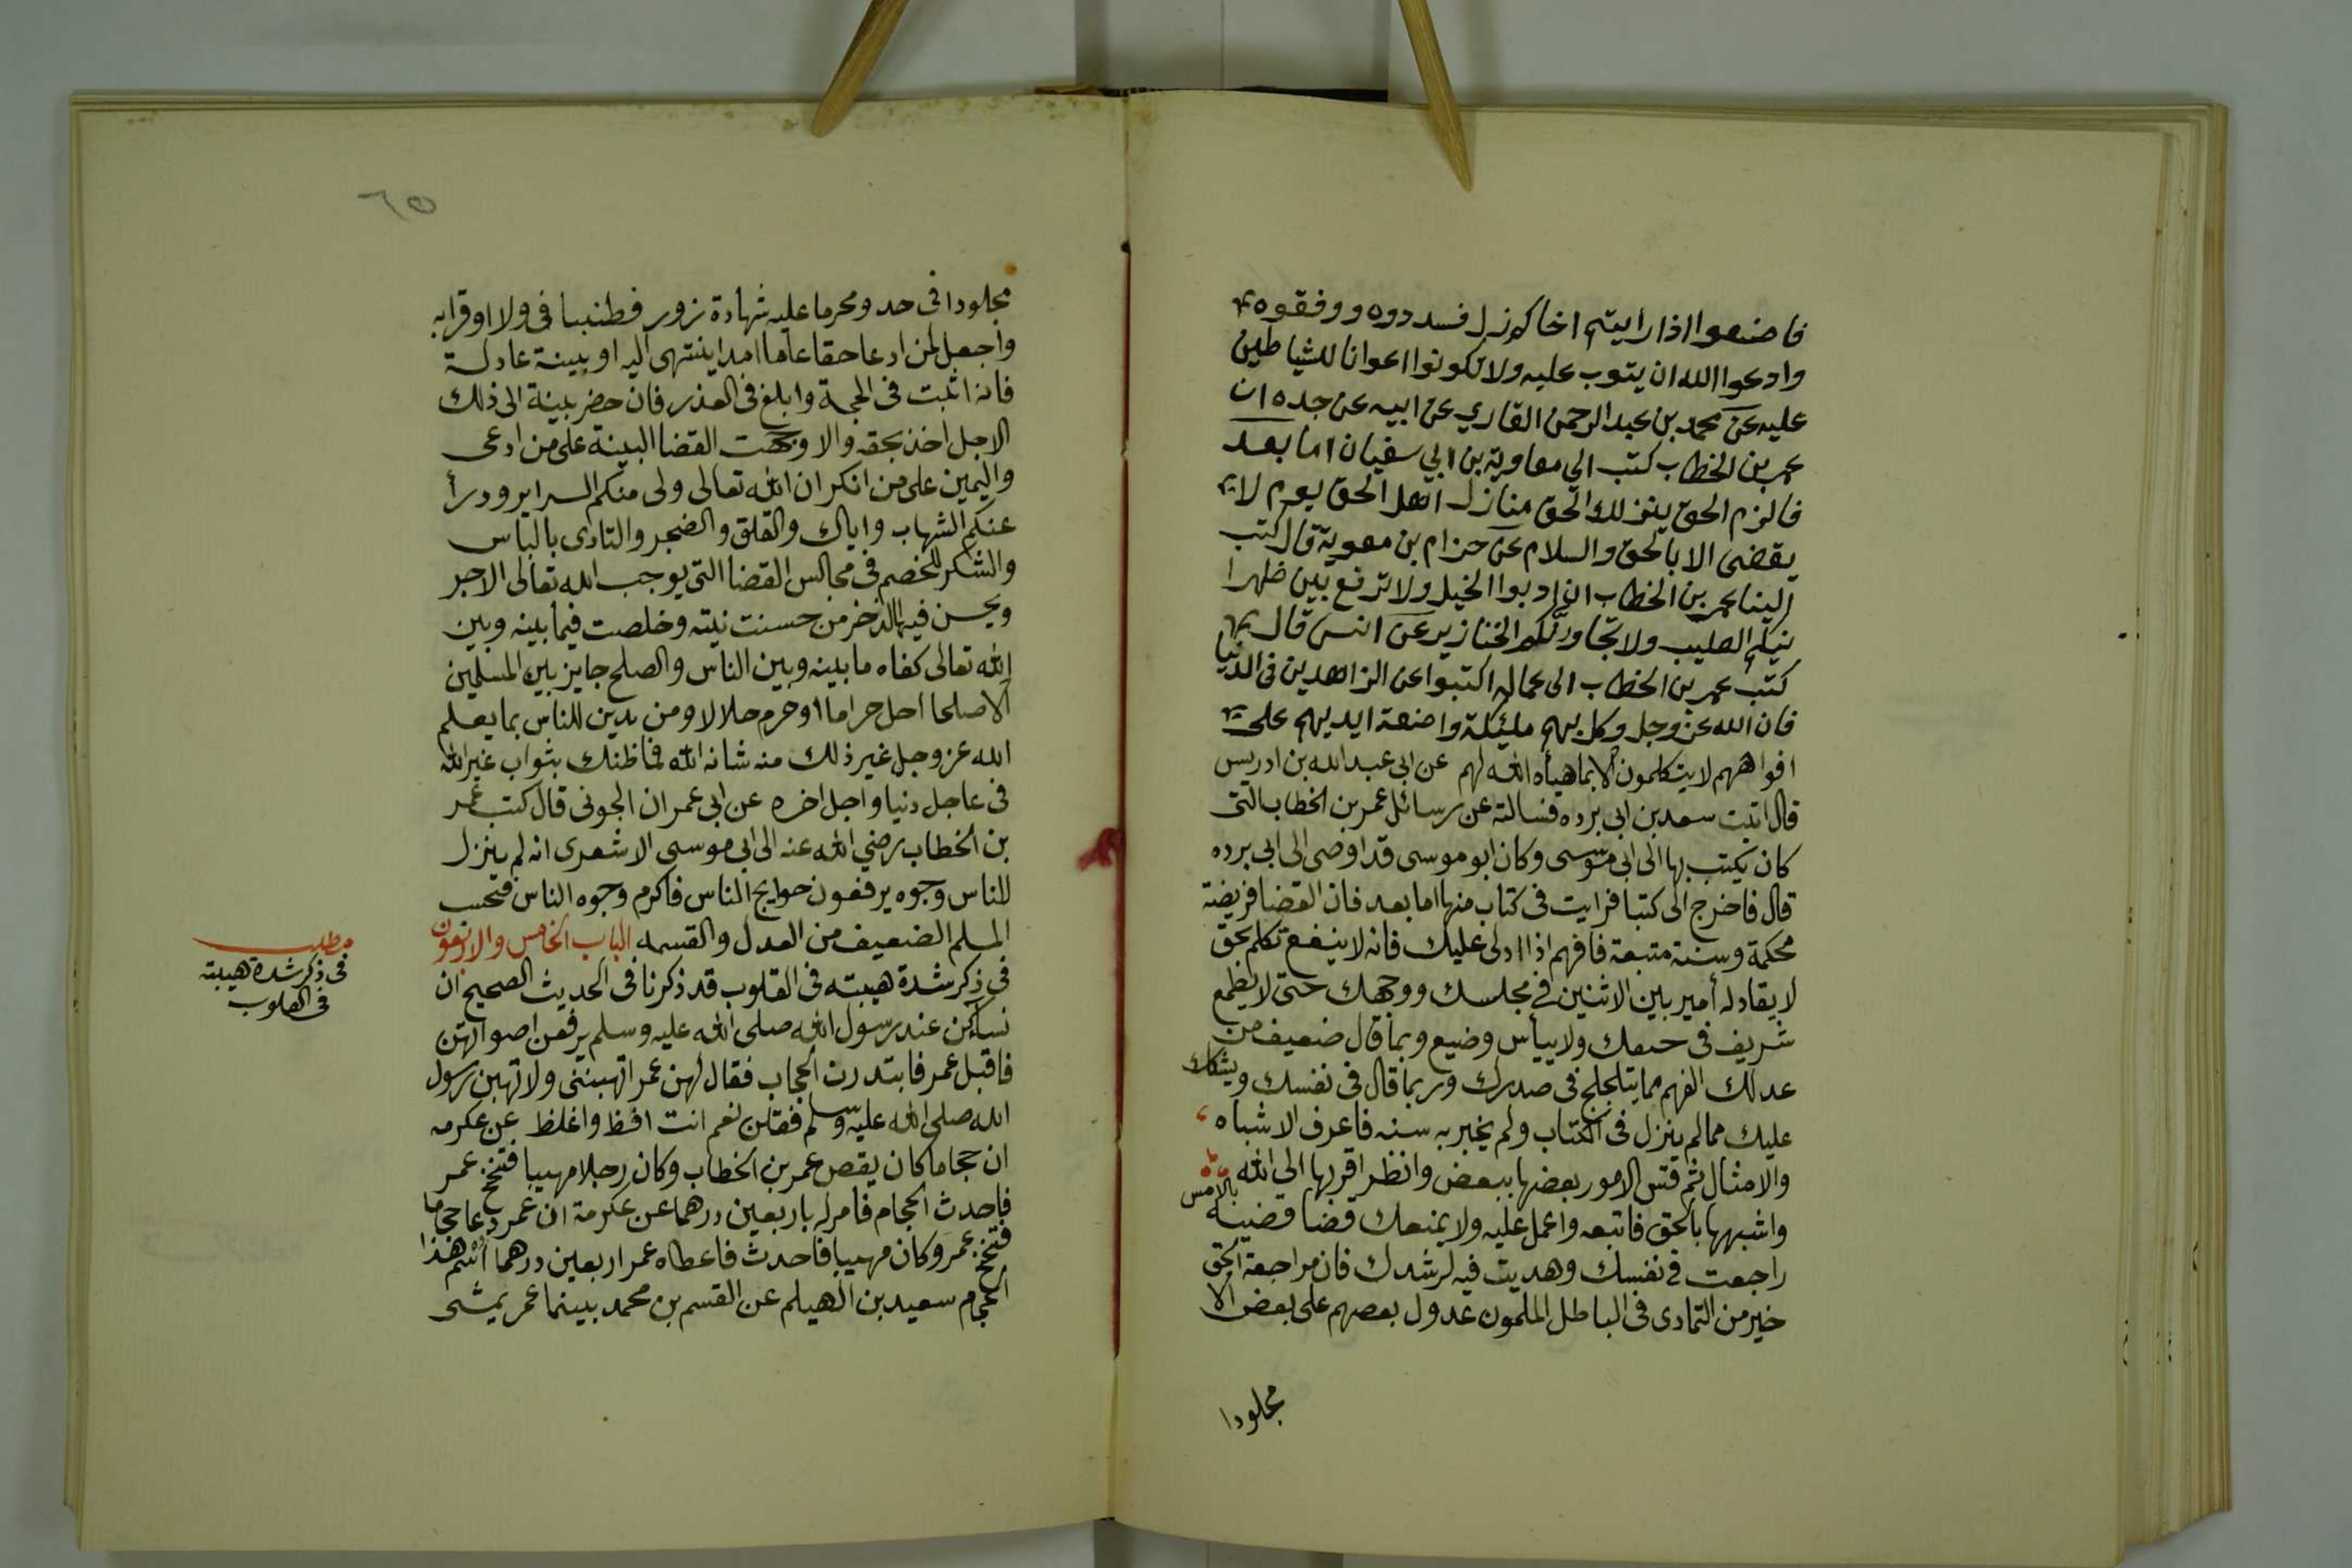 فاصنعوا اذا رايتم اخاكم زل فسددوه ووفقوه
وادعوا الله ان يتوب عليه ولا تكونوا اعوانا للشياطين
عليه عن محمد بن عبد الرحمن القاري عن ابيه عن جده ان
عمر بن الخطاب كتب الي معاوية بن ابي سفيان اما بعد
فالزم الحق ينزلك الحق منازل اهل الحق يوم لا
يقضى الا بالحق والسلام عن حزام بن معوية قال كتب
الينا عمر بن الخطاب ان ادبوا الخيل ولا ترفع بين ظهرا
نيكم الصليب ولا تجاورنكم الخنازير عن انس قال
كتب عمر بن الخطاب الى عماله اكتبوا عن الزاهدين في الدنيا
فان الله عز وجل وكل بهم مليكة واضعة ايديهم على
افواههم لا يتكلمون الا بما هيأه الله لهم عن ابي عبد الله بن ادريس
قال اتيت سعد بن ابى برده فسالته عن رسائل عمر بن الخطاب التى
كان يكتب بها الى ابى موسى وكان ابو موسى قد اوصى الى ابى برده
قال فاخرج الى كتبا فرايت فى كتاب منها اما بعد فان القضا فريضة
محكمة وسنة متبعة فافهم اذا ادلى عليك فانه لا ينفع تكلم بحق
لا يقاد له أمير بين الاثنين في مجلسك ووجهك حتى لا يطمع
شريف فى حيفك ولا ييأس وضيع وبما قال ضعيف من
عدلك الفهم مما يتلجلج فى صدرك وربما قال فى نفسك ويشكك
عليك مما لم ينزل فى الكتاب ولم يخبر به سنه فاعرف الاشباه
والامثال ثم قس الامور بعضها ببعض وانظر اقربها الى الله
واشبهها بالحق فاتبعه واعمل عليه ولا يمنعك قضا قضيته بالامس
راجعت فى نفسك وهديت فيه لرشدك فان مراجعة الحق
خير من التمادى فى الباطل المسلمون عدول بعضهم على بعض الا
مجلودا
٦٥
مجلودا فى حد ومحرما عليه شهادة زور فطنينا فى ولا او قرابه
واجعل لمن ادعا حقا عاما امدا ينتهى اليه او ببينة عادلة
فانه اثبت فى الحجة وابلغ فى العذر فان حضر ببينة الى ذلك
الاجل اخذ بحقه والا وجهت القضا البينة على من ادعى
واليمين على من انكر ان الله تعالى ولى منكم السراير ودرأ
عنكم الشهاب واياك والقلق والضجر والتاذى بالناس
والشكر للخصم فى مجالس القضا التى يوجب الله تعالى الاجر
ويحسن فيها الذخر من حسنت نيته وخلصت فيما بينه وبين
الله تعالى كفاه ما بينه وبين الناس والصلح جايز بين المسلمين
الا صلحا احل حراما او حرم حلالا ومن يدين للناس بما يعلم
الله عز وجل غير ذلك منه شانه الله فما ظنك بثواب غير الله
فى عاجل دنيا واجل اخره عن ابى عمران الجونى قال كتب عمر
بن الخطاب رضي الله عنه الى ابى موسى الاشعرى انه لم ينزل
للناس وجوه يرفعون حوايج الناس فاكرم وجوه الناس فحسب
المسلم الضعيف من العدل والقسمه الباب الخامس والاربعون
فى ذكر شدة هيبته فى القلوب قد ذكرنا فى الحديث الصحيح ان
نساء كن عند رسول الله صلى الله عليه وسلم يرفعن اصواتهن
فاقبل عمر فابتدرن الحجاب فقال لهن عمر اتهبننى ولا تهبن رسول
الله صلى الله عليه وسلم فقلن نعم انت افظ واغلظ عن عكرمه
ان حجاما كان يقص عمر بن الخطاب وكان رجلا مهيبا فتنحنح عمر
فاحدث الحجام فامر له باربعين درهما عن عكرمة ان عمر دعا حجاما
فتنحنح عمر وكان مهيبا فاحدث فاعطاه عمر اربعين درهما اسم هذا
الحجام سعيد بن الهيلم عن القسم بن محمد بينما عمر يمشى
مطلب
فى ذكر شدة هيبته
فى القلوب